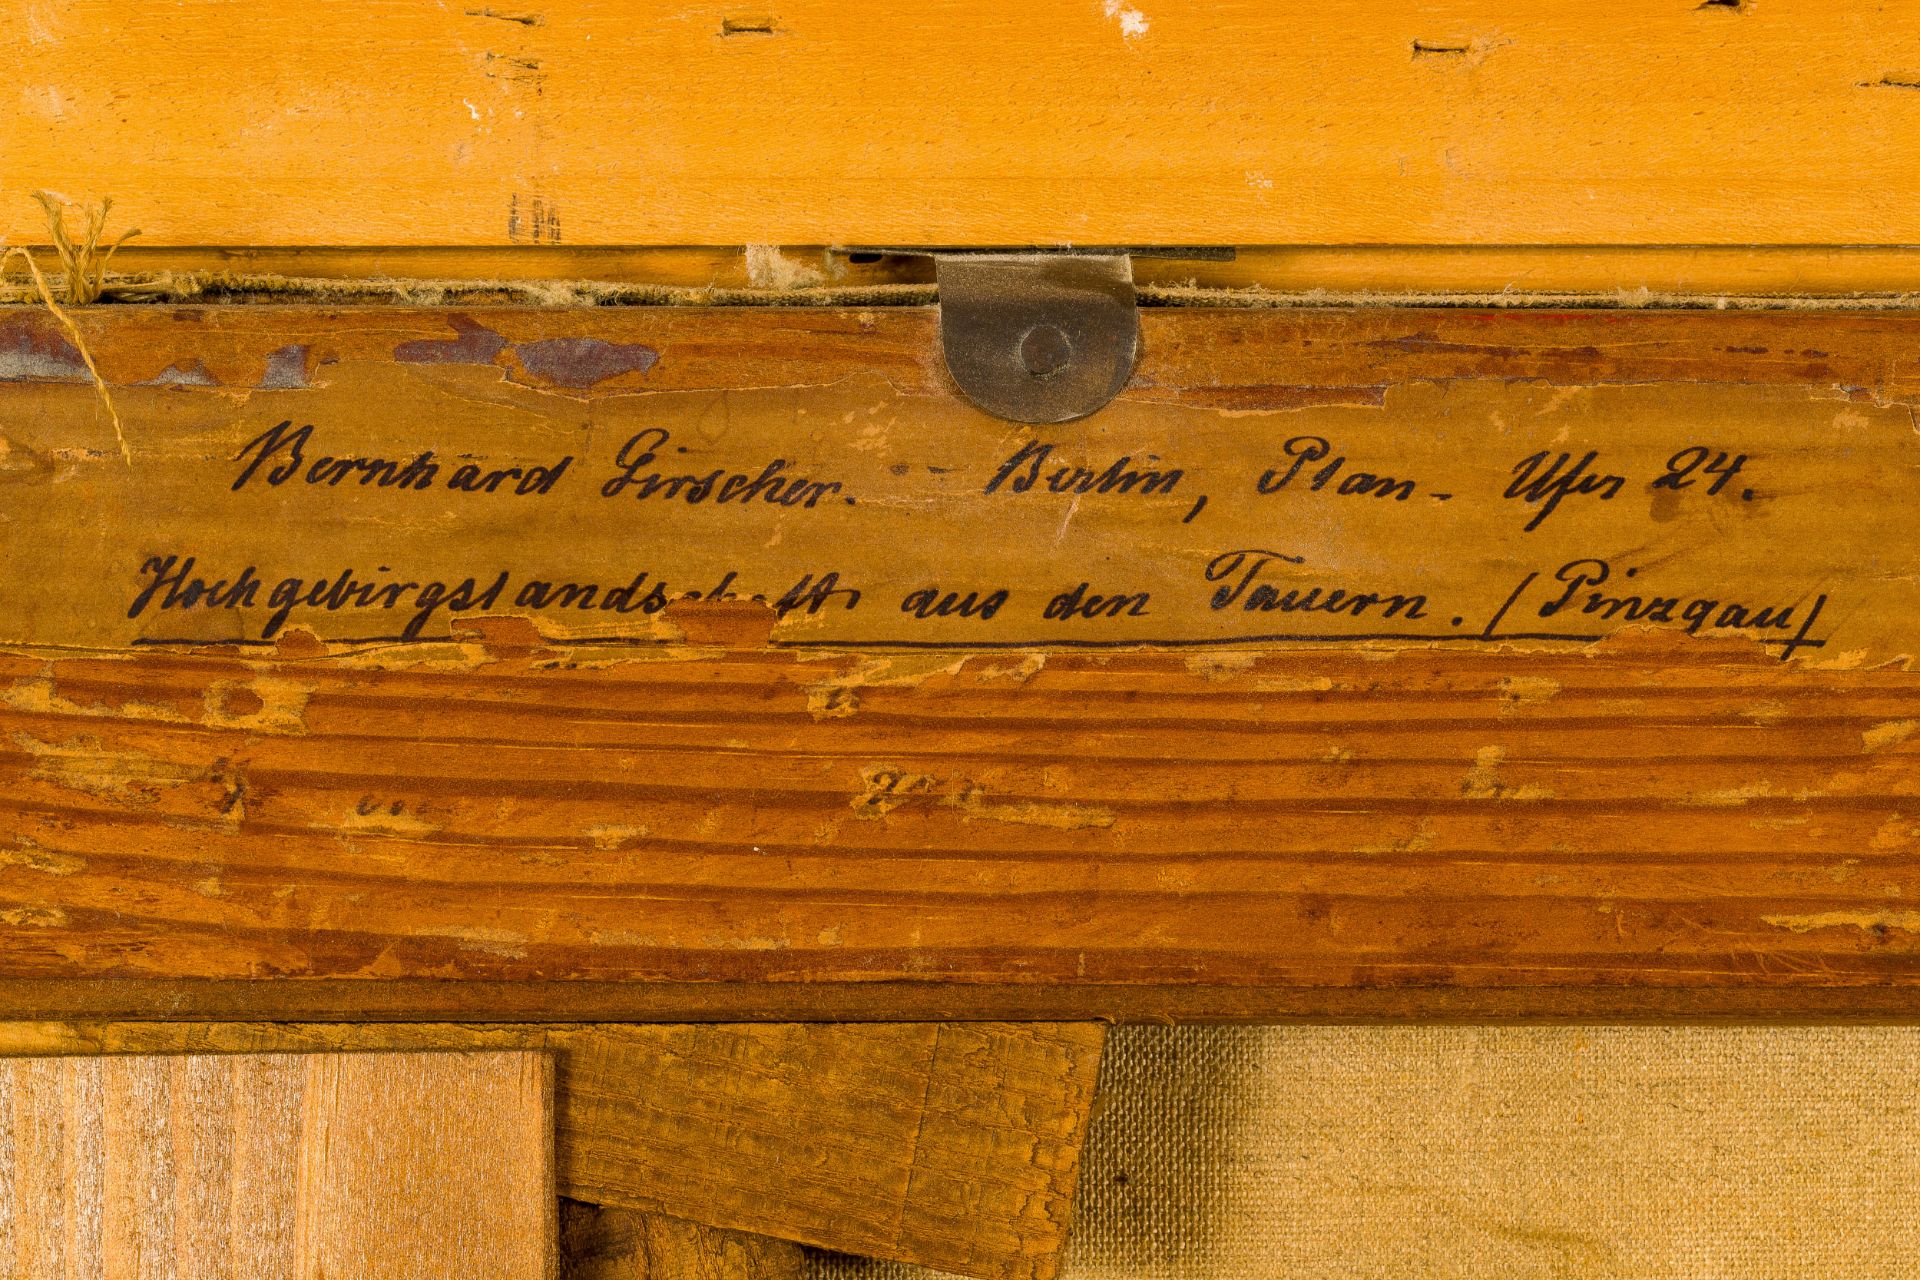 Bernhard Girscher. - Berlin, Plan-Ufer 24.
Hochgebirgslandschaft aus den Tauern. (Pinzgau)